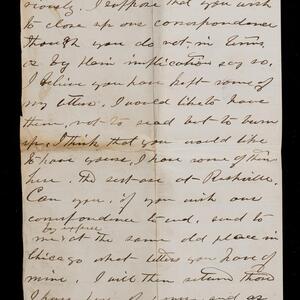 viously. I suppose that you wish
to close up our correspondence
though you do not, in terms,
or by plain implication say so,
I believe you have kept some of
my letters. I would like to have
them, not to read but to burn
up. I think that you would like
to have yours, I have some of them
here. The rest are at Rushville.
Can you, if you wish our
correspondence to end, send to
by express
me, at the same old place in
Chicago what letters you have of
mine. I will then return those
I have here of yours and as